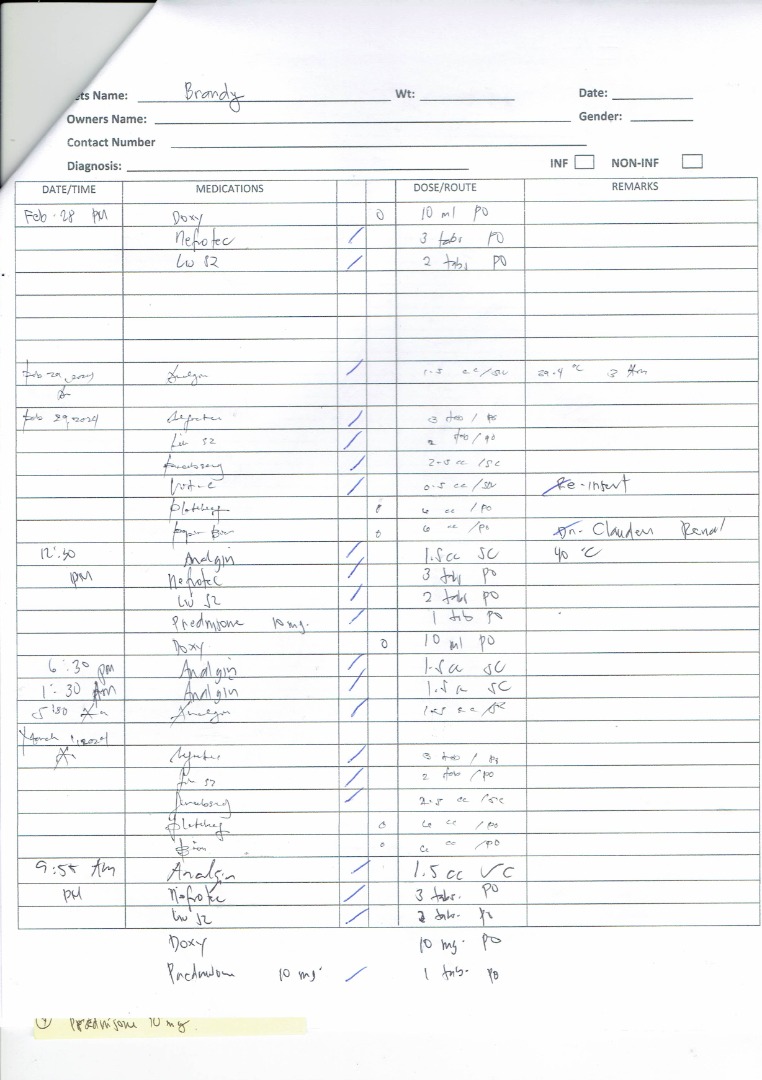 ets Name: Brandy Wt: Date:
Owners Name: Gender:
Contact Number
Diagnosis: INF NON-INF
DATE/TIME MEDICATIONS DOSE/ROUTE REMARKS
Feb. 28 PM Doxy 0 10 ml PO
Nefrotec / 3 tabs PO
Liv 52 / 2 tabs PO
Feb 29, 2024 Analgin / 1.5 cc/SC 39.4 °C 3 Am
Feb 29, 2024 Nefrotec / 3 tab / PO
Liv 52 / 2 tab / PO
/ 2.5 cc /SC
Vit-C / 0.5 cc /SC Re-insert
0 cc / PO
0 cc / PO Renal
12:30 Analgin / 1.5 cc SC 40 °C
PM Nefrotec / 3 tabs PO
Liv 52 / 2 tabs PO
Prednisone 10 mg. / 1 tab PO
Doxy 0 10 ml PO
6:30 pm Analgin / 1.5 cc SC
1:30 Am Analgin / 1.5 cc SC
5:30 Am Analgin / 1.5 cc /SC
March 1, 2024
Nefrotec / 3 tab / PO
Liv 52 / 2 tab / PO
/ 2.5 cc /SC
0 cc / PO
0 cc /PO
9:55 Am Analgin / 1.5 cc SC
PM Nefrotec / 3 tabs. PO
Liv 52 / 2 tabs. PO
Doxy 10 mg. PO
Prednisone 10 mg. / 1 tab. PO
Prednisone 10 mg.